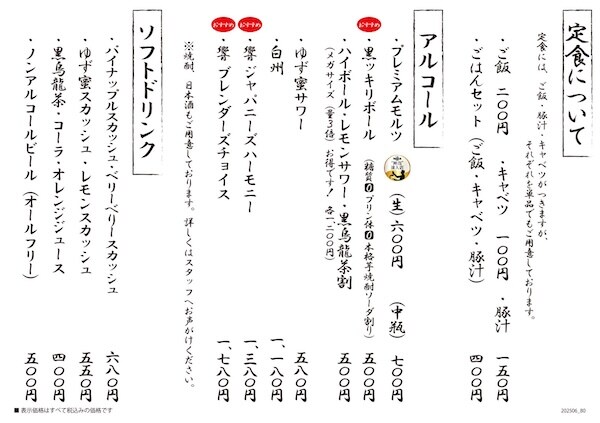 定食について
定食には、ご飯・豚汁・キャベツがつきますが、
それぞれを単品でもご用意しております。
・ご飯 二〇〇円 ・キャベツ 一〇〇円 ・豚汁 一五〇円
・ごはんセット（ご飯・キャベツ・豚汁） 四〇〇円
アルコール
・プレミアムモルツ （生）六〇〇円 （中瓶） 七〇〇円
おすすめ
・黒ッキリボール （糖質0プリン体0本格芋焼酎ソーダ割り） 五〇〇円
・ハイボール・レモンサワー・黒烏龍茶割 五〇〇円
（メガサイズ（量3倍）お得です！ 各一、二〇〇円）
・ゆず蜜サワー 五八〇円
・白州 一、一八〇円
おすすめ
・響 ジャパニーズハーモニー 一、三八〇円
おすすめ
・響 ブレンダーズチョイス 一、七八〇円
※焼酎、日本酒もご用意しております。詳しくはスタッフへお声がけください。
ソフトドリンク
・パイナップルスカッシュ・ベリーベリースカッシュ 六八〇円
・ゆず蜜スカッシュ・レモンスカッシュ 五五〇円
・黒烏龍茶・コーラ・オレンジジュース 四〇〇円
・ノンアルコールビール（オールフリー） 五〇〇円
■ 表示価格はすべて税込みの価格です
202506_80